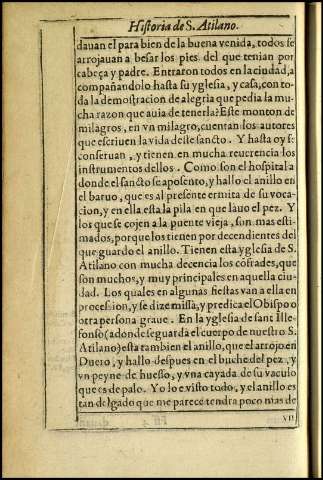 Historia de S. Atilano.
dauan el para bien de la buena venida, todos se
arrojauan a besar los pies del que tenian por
cabeça y padre. Entraron todos en la ciudad, a
compañandolo hasta su yglesia, y casa, con to
da la demostracion de alegria que pedia la mu-
cha razon que auia de tenerla? Este monton de
milagros, en vn milagro, cuentan los autores
que escriuen la vida deste sancto. Y hasta oy se
conseruan, y tienen en mucha reuerencia los
instrumentos dellos. Como son el hospital a
donde el sancto se aposento, y hallo el anillo en
el baruo, que es al presente ermita de su voca-
cion, y en ella esta la pila en que lauo el pez. Y
los que se cojen a la puente vieja, son mas esti-
mados, porque los tienen por decendientes del
que guardo el anillo. Tienen esta yglesia de S.
Atilano con mucha decencia los cofrades, que
son muchos, y muy principales en aquella ciu-
dad. Los quales en algunas fiestas van a ella en
procession, y se dize missa, y predica el Obispo o
otra persona graue. En la yglesia de sant Ille-
fonso (adonde se guarda el cuerpo de nuestro S.
Atilano) esta tambien el anillo, que el arrojo en
Duero, y hallo despues en el buche del pez, y
vn peyne de huesso, y vna cayada de su vaculo
que es de palo. Yo lo e visto todo, y el anillo es
tan delgado que me parece tendra poco mas de
vn